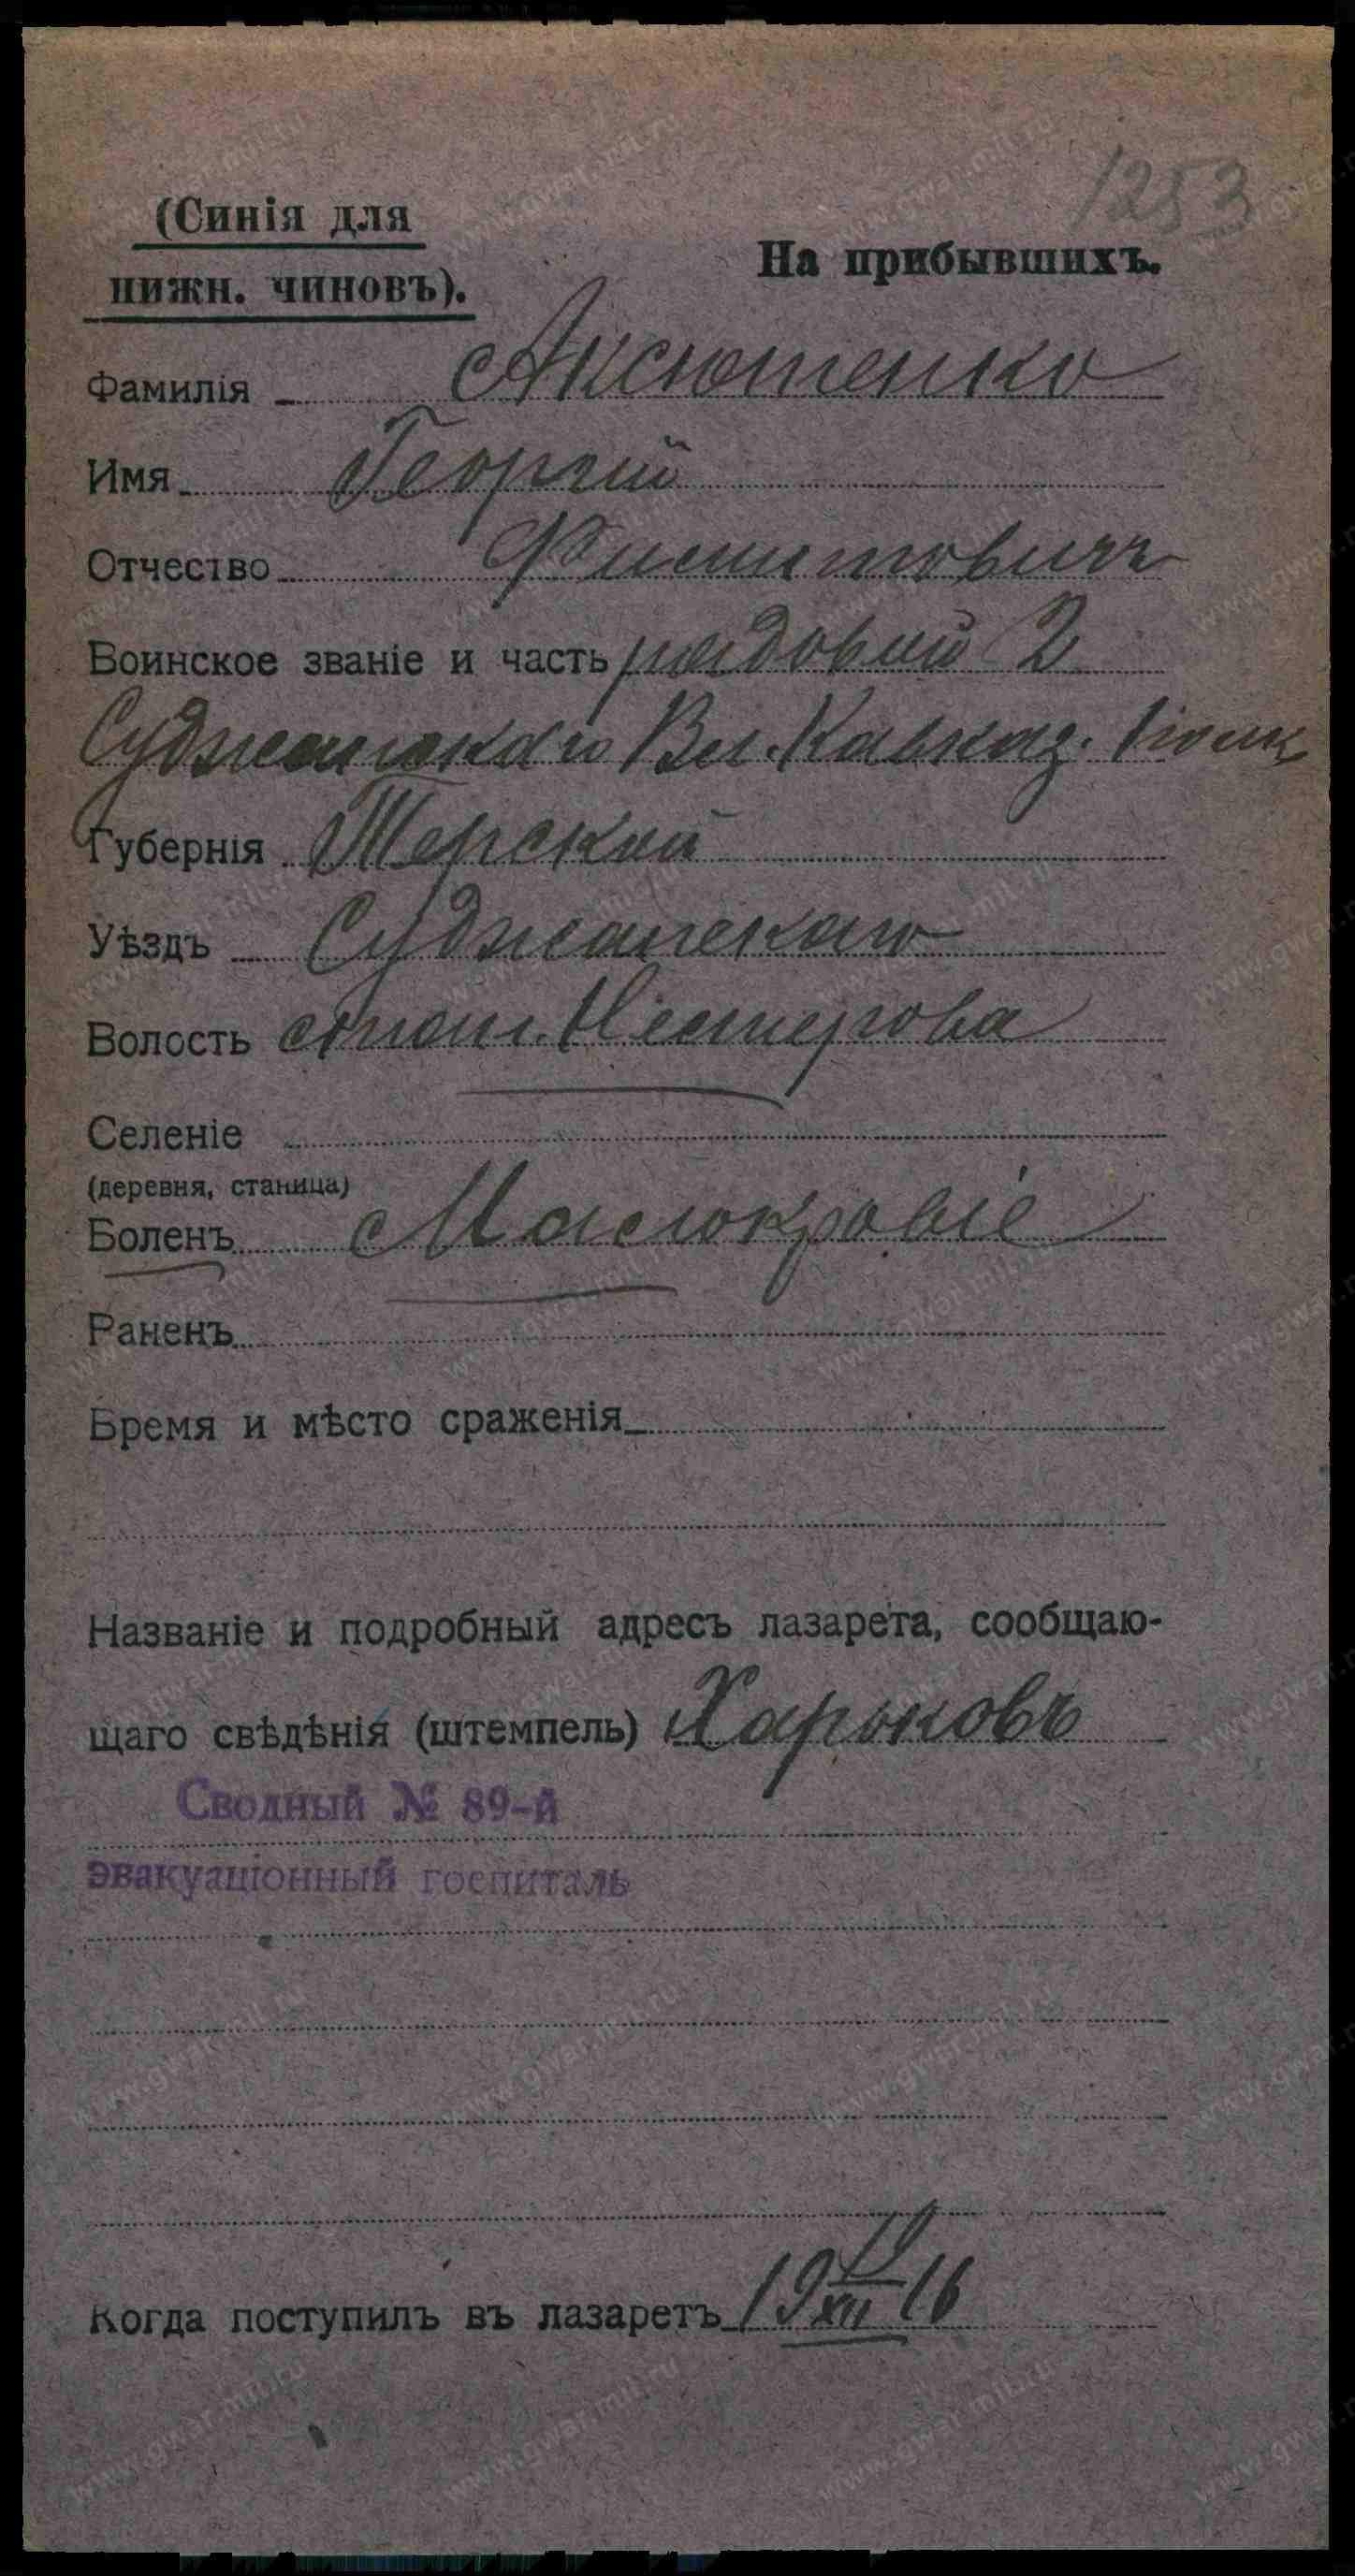 1253
(Синія для
нижн. чиновъ).
На прибывшихъ.
Фамилія Аксютенко
Имя Георгій
Отчество
Воинское званіе и часть рядовий 2
Вл. Кавказ. полк
Губернія Терский
Уѣздъ Сунжанскаго
Волость стан. Нестерова
Селеніе
(деревня, станица)
Боленъ Малокровіе
Раненъ
Время и мѣсто сраженія
Названіе и подробный адресъ лазарета, сообщаю-
щаго свѣдѣнія (штемпель) Харьковъ
Сводный № 89-й
эвакуаціонный госпиталь
Когда поступилъ въ лазаретъ 19 10/XII 16